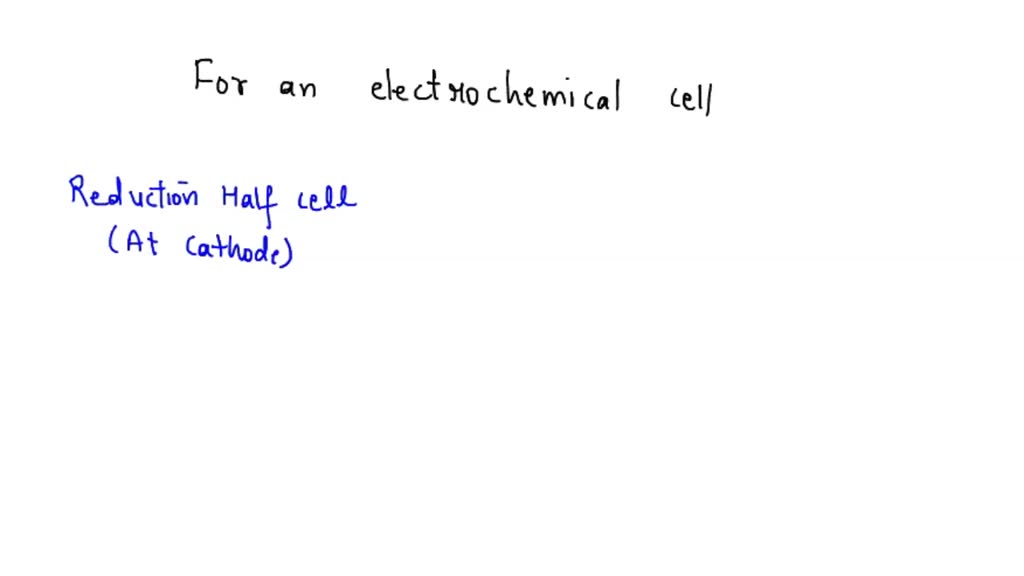 For an electrochemical cell
Reduction Half cell
(At Cathode)